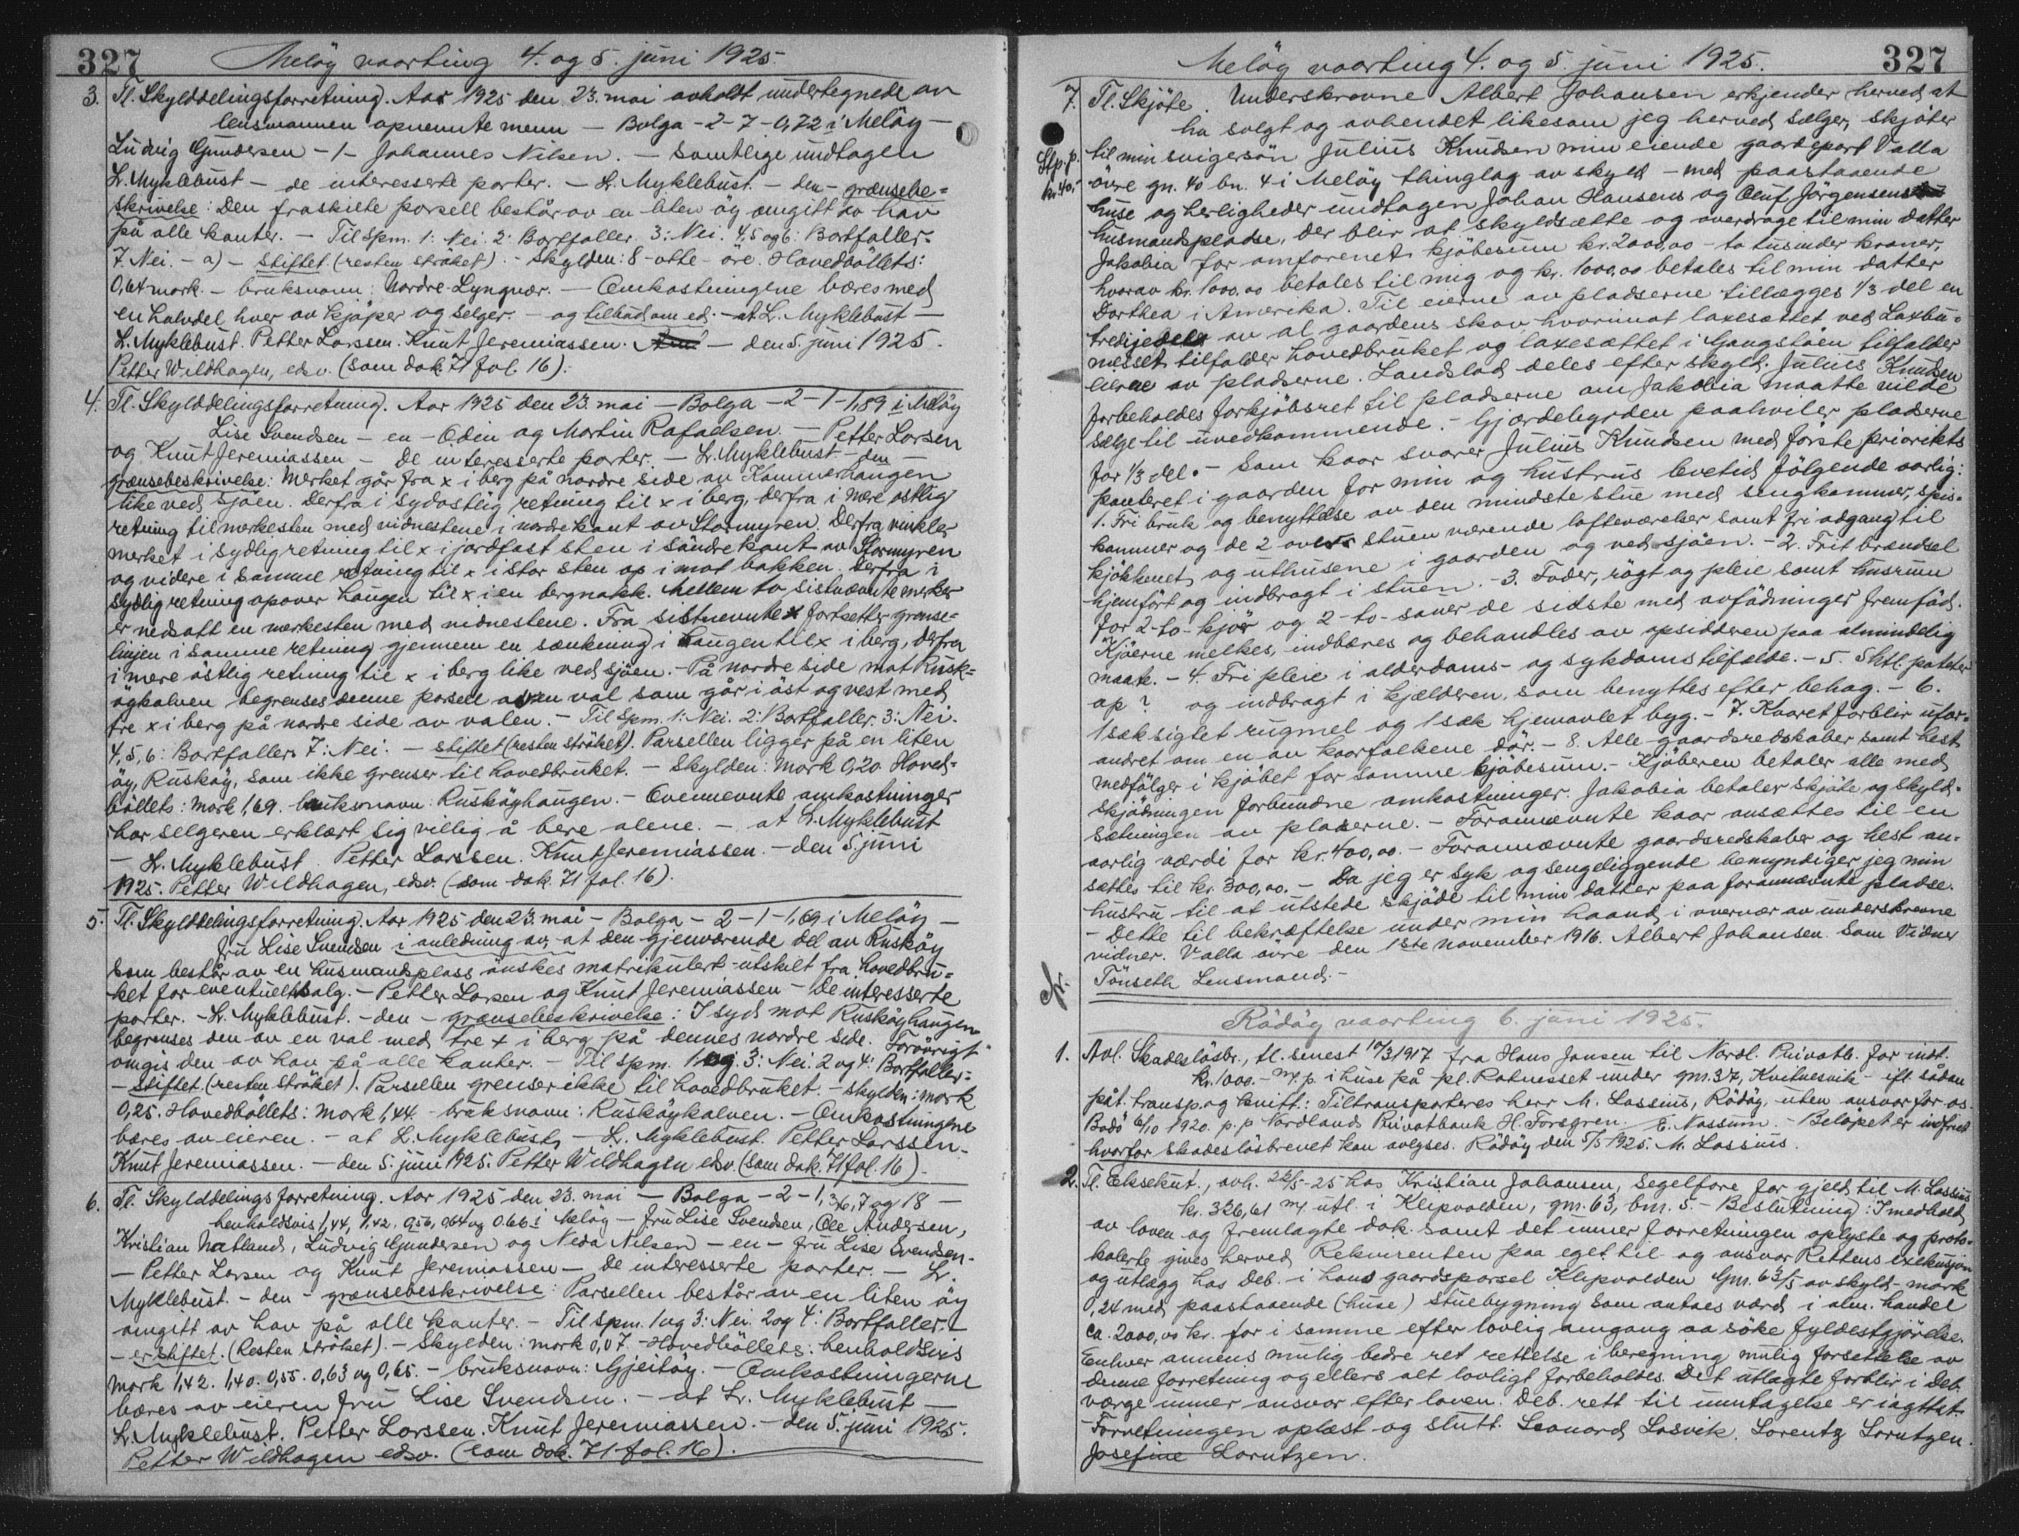 327
Meløy vaarting 4. og 5. juni 1925.
3. Tl. Skylddelingsforretning. Aar 1925 den 23. mai avholdt undertegnede av
lensmannen opnevnte menn — Bolga - 2 - 7 - 0,72 i Meløy —
Ludvig Gundersen - 1 - Johannes Nilsen. — Samtlige undtagen
L. Myklebust — de interesserte parter. — L. Myklebust. — den — grænsebe=
skrivelse: Den fraskilte parsell består av en liten øy omgitt av hav
på alle kanter. — Til Spm. 1: Nei. 2: Bortfaller. 3: Nei. 4, 5 og 6: Bortfaller.
7. Nei. - a) - stiftet (resten strøket). - Skylden: 8 - otte - øre. Hovedbøllets:
0,64 mark. - bruksnavn: Nordre Lyngvær. — Omkostningene bæres med
en halvdel hver av kjøper og selger. - og tilbud om ed. - at L. Myklebust —
L. Myklebust. Petter Larssen. Knut Jeremiassen. — den 5. juni 1925.
Petter Wildhagen, edsv. (som dok 71 fol. 16).
4. Tl. Skylddelingsforretning. Aar 1925 den 23. mai — Bolga — 2 - 1 - 1,89 i Meløy
Lise Svendsen — en — Odin og Martin Rafaelsen. — Petter Larsen
og Knut Jeremiassen — De interesserte parter. — L. Myklebust — den —
grænsebeskrivelse: Merket går fra x i berg på nordre side av Kammerhaugen
like ved sjøen. Derfra i sydøstlig retning til x i berg, derfra i mere østlig
retning til merkesten med vidnestene i nordre kant av Stormyren. Derfra vinkler
merket i sydlig retning til x i jordfast sten i søndre kant av Stormyren
og videre i samme retning til x i stor sten op i mot bakken. Derfra i
sydlig retning opover haugen til x i en bergnakk. Mellem to sistnævnte merker
er nedsatt en merkesten med vidnestene. Fra sistnevnte x fortsetter grense=
linjen i samme retning gjennem en sænkning i haugen til x i berg, derfra
i mere østlig retning til x i berg like ved sjøen. - På nordre side mot Rusk=
øykalven begrenses denne parsell av en val som går i øst og vest med
tre x i berg på nordre side av valen. - Til Spm. 1: Nei. 2: Bortfaller. 3: Nei.
4, 5, 6: Bortfaller. 7: Nei. — stiftet (resten strøket). Parsellen ligger på en liten
øy, Ruskøy, som ikke grenser til hovedbruket. — Skylden: Mark 0,20. Hoved=
bøllets: mark 1,69. bruksnavn: Ruskøyhaugen. - Ovennevnte omkostninger
har selgeren erklært sig villig å bere alene. — at L. Myklebust
— L. Myklebust. Petter Larssen. Knut Jeremiassen. — den 5. juni
1925. Petter Wildhagen, edsv. (som dok. 71 fol. 16).
5. Tl. Skylddelingsforretning. Aar 1925 den 23. mai — Bolga — 2 - 1 - 1,69 i Meløy —
Fru Lise Svendsen i anledning av, at den gjenværende del av Ruskøy
som består av en husmandsplass ønskes matrikulert - utskilt fra hovedbru=
ket for eventuelt salg. - Petter Larsen og Knut Jeremiassen - De interesserte
parter. - L. Myklebust. - den - grænsebeskrivelse: I syd mot Ruskøyhaugen
begrenses den av en val med tre x i berg på dennes nordre side. Forøvrigt
omgis den av hav på alle kanter. - Til spm. 1 og 3: Nei. 2 og 4: Bortfaller=
- stiftet (resten strøket). Parsellen grenser ikke til hovedbruket. - Skylden: mark
0,25. Hovedbøllets: mark 1,44 - bruksnavn: Ruskøykalven. - Omkostningene
bæres av eieren. - at L. Myklebust, - L. Myklebust. Petter Larssen.
Knut Jeremiassen. - den 5. juni 1925. Petter Wildhagen edsv. (som dok. 71 fol. 16).
6. Tl. Skylddelingsforretning. Aar 1925 den 23. mai — Bolga — 2 - 1, 3/6, 7 og 18 —
henholdsvis 1,44, 1,42, 0,56, 0,64 og 0,66 i Meløy — Fru Lise Svendsen, Ole Andersen,
Kristian Natland, Ludvig Gundersen og Neda Nilsen — en — Fru Lise Svendsen.
— Petter Larsen og Knut Jeremiassen — De interesserte parter. — L.
Myklebust. — den — grænsebeskrivelse: Parsellen består av en liten øy
omgitt av hav på alle kanter. - Til Spm. 1 og 3: Nei. 2 og 4: Bortfaller.
- er stiftet. (Resten strøket). - Skylden: mark 0,07 - Hovedbøllets: henholdsvis
mark 1,42. 1,40. 0,55. 0,63 og 0,65. - bruksnavn: Gjeitøy. - Omkostningerne
bæres av eieren Fru Lise Svendsen. - at L. Myklebust —
L. Myklebust. Petter Larssen. Knut Jeremiassen. - den 5. juni 1925.
Petter Wildhagen edsv. (som dok. 71 fol. 16).
Meløy vaarting 4. og 5. juni 1925.
327
7. Tl. Skjøte. Underskrevne Albert Johansen erkjender herved at
ha solgt og avhendet likesom jeg herved sælger, skjøter
Stp. p.
kr. 40,-
til min svigersøn Julius Knudsen min eiende gaardepart Valla
øvre gn. 40 bn. 4 i Meløy thinglag av skyld — med paastaaende
huse og herligheder undtagen Johan Hansens og Oluf Jørgensens
husmandspladse, der blir at skyldsætte og overdrage til min datter
Jakobia for omforenet kjøbesum kr. 2000,00 - to tusinder kroner,
hvorav kr. 1000,00 betales til mig og kr. 1000,00 betales til min datter
Dorthea i Amerika. Til eierne av pladserne tillægges 1/3 del en
tredjedel av al gaardens skov, hvorimot laxesættet ved Laxbu-
nesset tilfalder hovedbruket og laxesættet i Gangstøen tilfalder
eierne av pladserne. Landslod deles efter skyld. Julius Knudsen
forbeholdes forkjøbsret til pladserne om Jakobia maatte ville
sælge til uvedkommende. - Gjærdebyrden paahviler pladserne
for 1/3 del. - Som kaar svarer Julius Knudsen med første prioritets
panteret i gaarden for min og hustrus levetid følgende aarlig:
1. Fri bruk og benyttelse av den mindste stue med sengkammer, spis-
kammer og de 2 over stuen værende lofteværelser samt fri adgang til
kjøkkenet, og uthusene i gaarden og ved sjøen. - 2. Frit brændsel
hjemført og indbragt i stuen. - 3. Foder, røgt og pleie samt husrum
for 2 - to - kjør og 2 - to - sauer de sidste med avfødninger fremfød.
Kjøerne melkes, indbæres og behandles av opsidderen paa almindelig
maate. - 4. Fri pleie i alderdoms- og sykdomstilfælde. - 5. 5 htl. poteter
op? og indbragt i kjælderen, som benyttes efter behag. - 6.
1 sæk sigtet rugmel og 1 sæk hjemavlet byg. - 7. Kaaret forblir ufor-
andret om en av kaarfolkene dør. - 8. Alle gaardsredskaber samt hest
medfølger i kjøbet for samme kjøbesum. - Kjøberen betaler alle med
skjødningen forbundne omkostninger. Jakobia betaler skjøte og skyld-
sætningen av pladserne. - Forannævnte kaar ansættes til en
aarlig værdi for kr. 400,00. - Forannævnte gaardsredskaber og hest an-
sættes til kr. 300,00. - Da jeg er syk og sengeliggende bemyndiger jeg min
hustru til at utstede skjøde til min datter paa forannævnte pladse.
- Dette til bekræftelse under min haand i overvær av underskrevne
vidner. Valla øvre den 1ste november 1916. Albert Johansen. Som Vidner
Tønseth Lensmand. -
Rødøy vaarting 6. juni 1925.
1. Avl. Skadesløsbr., tl. senest 10/3 1917 fra Hans Jensen til Nordl. Privatb. for indt.
kr. 1000.- m/ p. i huse på pl. Ratnesset under gn. 37, Kvitnesvik - ift. sådan
påt. transp. og kvitt.: Tiltransporteres herr M. Lassius, Rødøy, uten ansvar for os.
Bodø 6/10 1920. p. p. Nordlands Privatbank H. Forsgren. E. Nassum. - Beløpet er indfriet
hvorfor skadesløsbrevet kan avlyses. Rødøy den 5/5 1925. M. Lassius.
2. Tl. Eksekut., avh. 22/5 - 25 hos Kristian Johansen, Segelfore for gjeld til M. Lassius
kr. 326,61 m/ utl. i Klipvolden, gn. 63, bn. 5. - Beslutning: I medhold
av loven og fremlagte dok. samt det unner forretningen oplyste og proto-
kolerte gives herved Rekvirenten paa eget til og ansvar Rettens exekusjon
og utlægg hos Deb. - i hans gaardsparsel Klipvolden Gn. 63/5 av skyld - mark
0,24 med paastaaende (huse) stuebygning som antaes værd i alm. handel
ca. 2000,00 kr. for i samme efter lovlig omgang aa søke fyldestgjørelse.
Enhver annens mulig bedre ret rettelse i beregning mulig forsettelse av
denne forretning og ellers alt lovligt forbeholdes. Det utlagte forblir i Deb.
værge unner ansvar efter loven. Deb. rett til unntagelse er iagttat.
Forretningen oplæst og slutt. Leonard Lasvik. Lorentz Lorntzen.
Josefine Lorntzen.